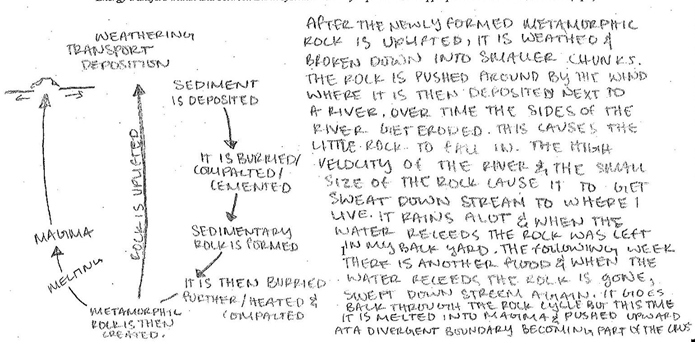 WEATHERING
TRANSPORT
DEPOSITION
SEDIMENT
IS DEPOSITED
IT IS BURRIED/
COMPALTED/
CEMENTED
SEDIMENTARY
ROCK IS FORMED
IT IS THEN BURRIED
FURTHER/HEATED &
COMPALTED
METAMORPHIC
ROCK IS THEN
CREATED.
MELTING
MAGMA
ROCK IS UPLIFTED
AFTER THE NEWLY FORMED METAMORPHIC
ROCK IS UPLIFTED, IT IS WEATHED &
BROKEN DOWN INTO SMALLER CHUNKS.
THE ROCK IS PUSHED AROUND BY THE WIND
WHERE IT IS THEN DEPOSITED NEXT TO
A RIVER. OVER TIME THE SIDES OF THE
RIVER GET ERODED. THIS CAUSES THE
LITTLE ROCK TO FALL IN. THE HIGH
VELOCITY OF THE RIVER & THE SMALL
SIZE OF THE ROCK CAUSE IT TO GET
SWEAT DOWN STREAM TO WHERE I
LIVE. IT RAINS ALOT & WHEN THE
WATER RECEEDS THE ROCK WAS LEFT
IN MY BACK YARD. THE FOLLOWING WEEK
THERE IS ANOTHER FLOOD & WHEN THE
WATER RECEEDS THE ROCK IS GONE,
SWEPT DOWN STREEM AGAIN. IT GOES
BACK THROUGH THE ROCK CYCLE BUT THIS TIME
IT IS MELTED INTO MAGMA & PUSHED UPWARD
AT A DIVERGENT BOUNDARY BECOMING PART OF THE